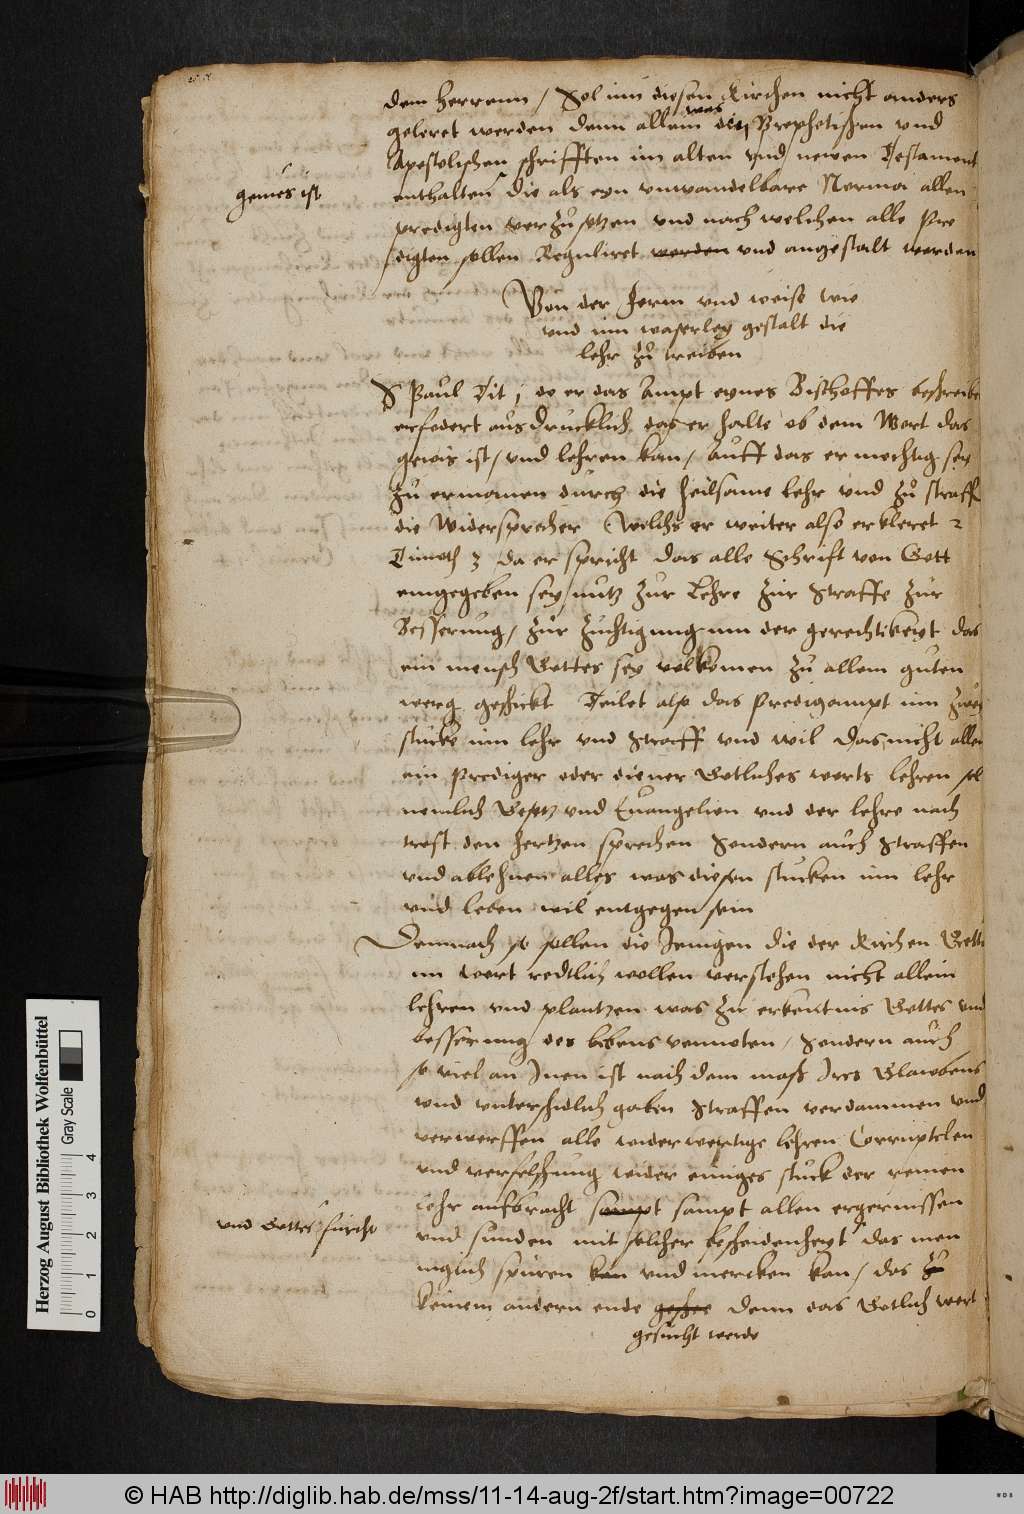 dem herrenn / Sol inn diesen Kirchen nicht anders
geleret werden denn allein was die Prophetischen vnd
Apostolischen schrifften im alten vnd newen Testament
gemes ist
enthalten die als eyn vnwandelbare Norma allen
predigten verzusetzen vnd nach welchen alle Pre
digten sollen Reguliret werden vnd angestalt werden
Von der Form vnd weise wie
vnd inn waserley gestalt die
lehr zu treiben
S Paul Tit 1 do er das Ampt eynes Bischoffes beschreibe
erfodert ausdrucklich das er halte ob dem Wort das
gewis ist / vnd lehren kan / Auff das er mechtig sey
zu ermanen durch die heilsame lehr vnd zu straffe
die Widersprecher Welchs er weiter also erkleret 2
Timoth 3 da er spricht das alle Schrift von Gott
eingegeben sey / nutz zur Lehre zur Straffe zur
Besserung / zur zuchtigung inn der gerechtikeyt das
ein mensch Gottes sey volkomen zu allem guten
werg geschickt Teilet also das Predigampt inn zwey
stucke inn lehr vnd Straff vnd wil das nicht allein
ein Prediger oder diener Gotliches worts lehren sol
nemlich Gesetz vnd Euangelion vnd der lehre nach
trost den hertzen sprechen Sondern auch Straffen
vnd ablehnen alles was diesen stucken inn lehr
vnd leben wil entgegen sein
Demnach so sollen die Jenigen die der Kirchen Gottes
im wort redtlich wollen verstehen nicht allein
lehren vnd plantzen was zu erkentnis Gottes vnd
besserung des lebens vonnoten / Sondern auch
so viel an Inen ist nach dem mass Ires Glawbens
vnd vnterschidlich gaben Straffen verdammen vnd
verwerffen alle widerwertige lehren Corruptelen
vnd verfelschung wider einiges stuck der reinen
lehr aufbracht sampt sampt allen ergernissen
vnd Gottes furcht
vnd sunden mit solcher bescheidenheyt das men
niglich spuren kan vnd mercken kan / das zu
keinem andern ende geschee denn das Gotlich wort
gesucht werde
Herzog August Bibliothek Wolfenbüttel
Gray Scale
0 1 2 3 4
© HAB http://diglib.hab.de/mss/11-14-aug-2f/start.htm?image=00722